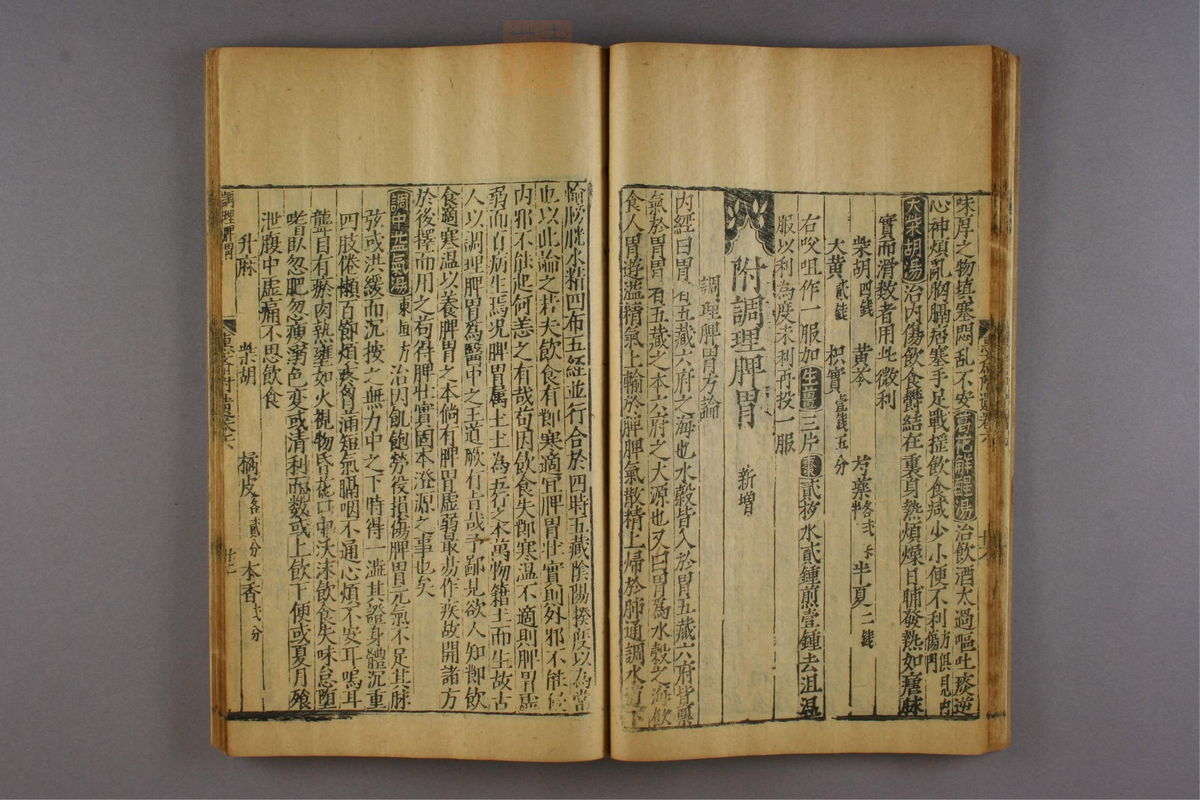 味厚之物填塞悶乱不安葛花解酲湯治飲酒太過嘔吐痰逆
心神煩乱胸膈痞塞手足戰揺飲食减少小便不利方俱見内傷門
大柴胡湯治内傷飲食欝結在裏身熱煩燥日晡發熱如瘧脉
實而滑数者用此微利
柴胡四錢 黄芩 芍藥各弍 半夏二錢
大黄貳錢 枳實壹錢五分
右㕮咀作一服加生薑三片棗貳枚水貳鍾煎壹鍾去沮温
服以利為度未利再投一服
附調理脾胃 新增
調理脾胃方論
内經曰胃者五藏六府之海也水穀皆入於胃五藏六府皆禀
氣於胃胃者五藏之本六府之大源也又曰胃為水穀之海飲
食入胃遊溢精氣上輸於脾脾氣散精上歸於肺通調水道下
輸膀胱水精四布五經並行合於四時五藏陰陽揆度以為常
也以此論之若夫飲食有節寒適宜脾胃壮實則外邪不能侵
内邪不能起何恙之有哉苟因飲食失節寒温不適則脾胃虚
弱而百病生焉况脾胃属土土為五行之本萬物籍土而生故古
人以調理脾胃為醫中之王道厥有旨哉予鄙見欲人知節飲
食適寒温以養脾胃之本倘有脾胃虚弱最易作疾故開諸方
於後擇而用之苟得脾壮實固本澄源之事也矣
調中益氣湯東垣方治因飢飽勞役損傷脾胃元氣不足其脉
弦或洪緩而沉按之無力中之下時得一澁其證身體沉重
四肢倦懶百節煩疼胷滿短氣膈咽不通心煩不安耳鳴耳
聾目有瘀肉熱壅如火視物昏花口中沃沫飲食失味怠惰
嗜臥忽肥忽瘦溺色変或清利而数或上飲下便或夏月飱
泄腹中虚痛不思飲食
升麻 柴胡 橘皮各貳分 木香弍分
調理脾胃